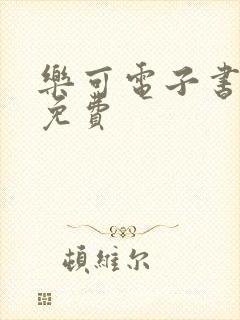 樂可電子書
免費
頓維尔